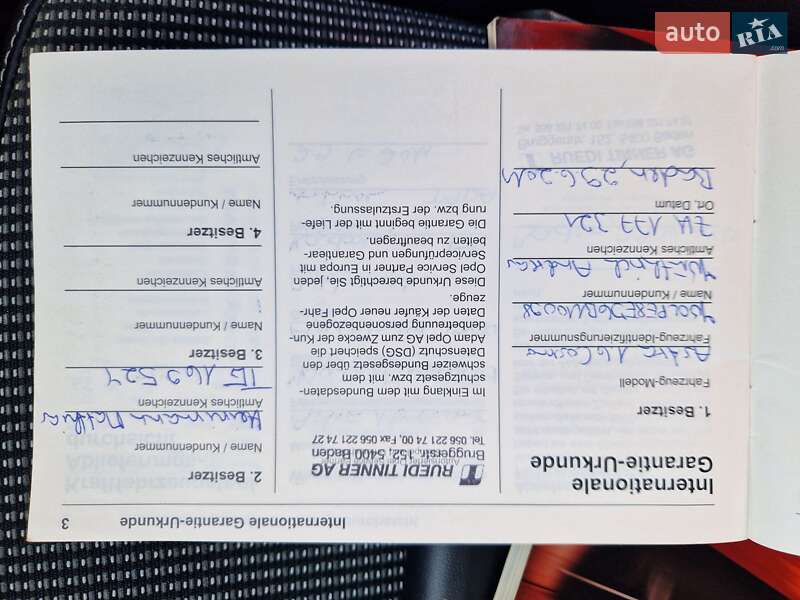 auto RIA .com
Internationale Garantie-Urkunde
3
Internationale
Garantie-Urkunde
1. Besitzer
Fahrzeug-Modell
Astra 1.6 Cosmo
Fahrzeug-Identifizierungsnummer
Name / Kundennummer
Andreas
Amtliches Kennzeichen
ZH 177 321
Ort, Datum
Baden, 29.6.2011
RUEDI TINNER AG
Bruggerstr. 152, 5400 Baden
Tel. 056 221 74 00, Fax 056 221 74 27
Im Einklang mit dem Bundesdaten-
schutzgesetz bzw. mit dem
schweizer Bundesgesetz über den
Datenschutz (DSG) speichert die
Adam Opel AG zum Zwecke der Kun-
denbetreuung personenbezogene
Daten der Käufer neuer Opel Fahr-
zeuge.
Diese Urkunde berechtigt Sie, jeden
Opel Service Partner in Europa mit
Serviceprüfungen und Garantiear-
beiten zu beauftragen.
Die Garantie beginnt mit der Liefe-
rung bzw. der Erstzulassung.
2. Besitzer
Name / Kundennummer
Amtliches Kennzeichen
TG 169 527
3. Besitzer
Name / Kundennummer
Amtliches Kennzeichen
4. Besitzer
Name / Kundennummer
Amtliches Kennzeichen